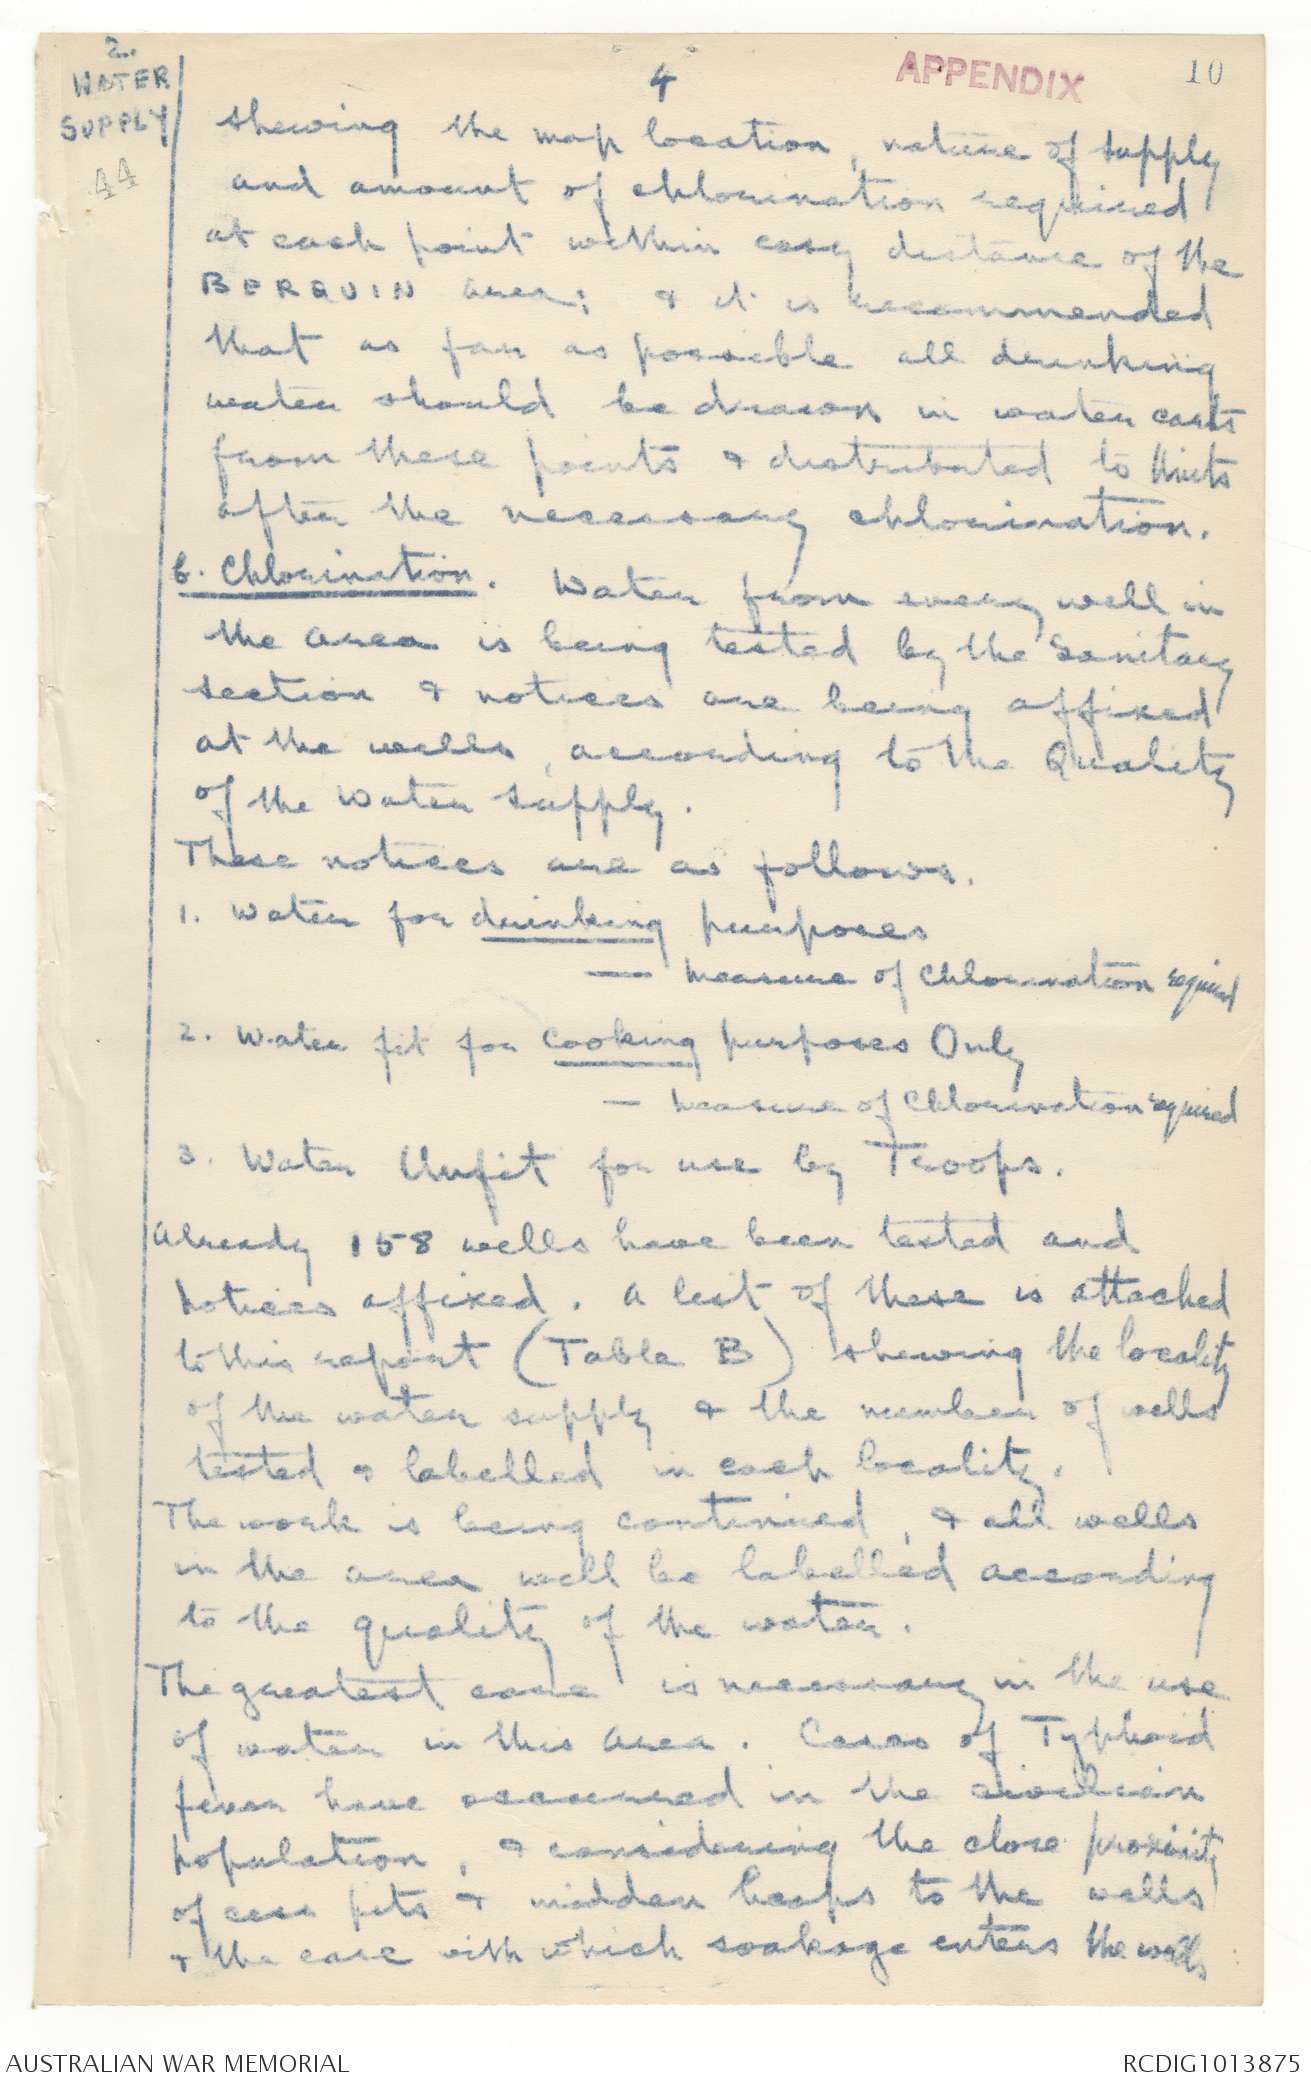 2.
WATER
SUPPLY
44
4
APPENDIX
10
shewing the map location, nature of supply
and amount of chlorination required
at each point within easy distance of the
BERQUIN area; & it is recommended
that as far as possible all drinking
water should be drawn in water carts
from these points & distributed to Units
after the necessary chlorination.
b. Chlorination. Water from every well in
the area is being tested by the Sanitary
section & notices are being affixed
at the wells, according to the Quality
of the water supply.
These notices are as follows.
1. Water for drinking purposes
— measure of Chlorination required
2. Water fit for cooking purposes Only
— measure of Chlorination required
3. Water Unfit for use by Troops.
Already 158 wells have been tested and
notices affixed. A list of these is attached
to this report (Table B) shewing the locality
of the water supply & the number of wells
tested & labelled in each locality.
The work is being continued, & all wells
in the area will be labelled according
to the quality of the water.
The greatest care is necessary in the use
of water in this area. Cases of Typhoid
fever have occurred in the civilian
population, & considering the close proximity
of cess pits & midden heaps to the wells
& the ease with which soakage enters the wells
AUSTRALIAN WAR MEMORIAL
RCDIG1013875